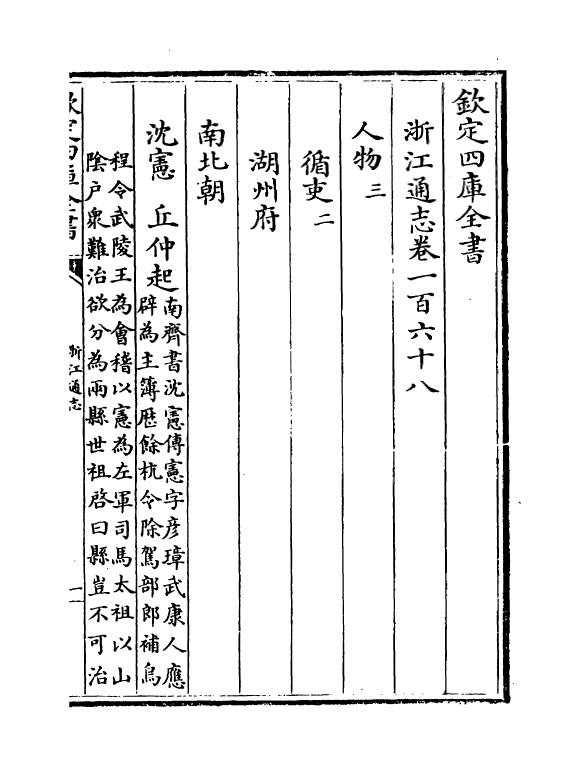 欽定四庫全書
浙江通志卷一百六十八
人物三
循吏二
湖州府
南北朝
沈憲 丘仲起
南齊書沈憲傳憲字彦璋武康人應
辟為主簿歴餘杭令除駕部郎補烏
程令武陵王為會稽以憲為左軍司馬太祖以山
陰户衆難治欲分為兩縣世祖啓曰縣豈不可治
欽定四庫全書
浙江通志
一